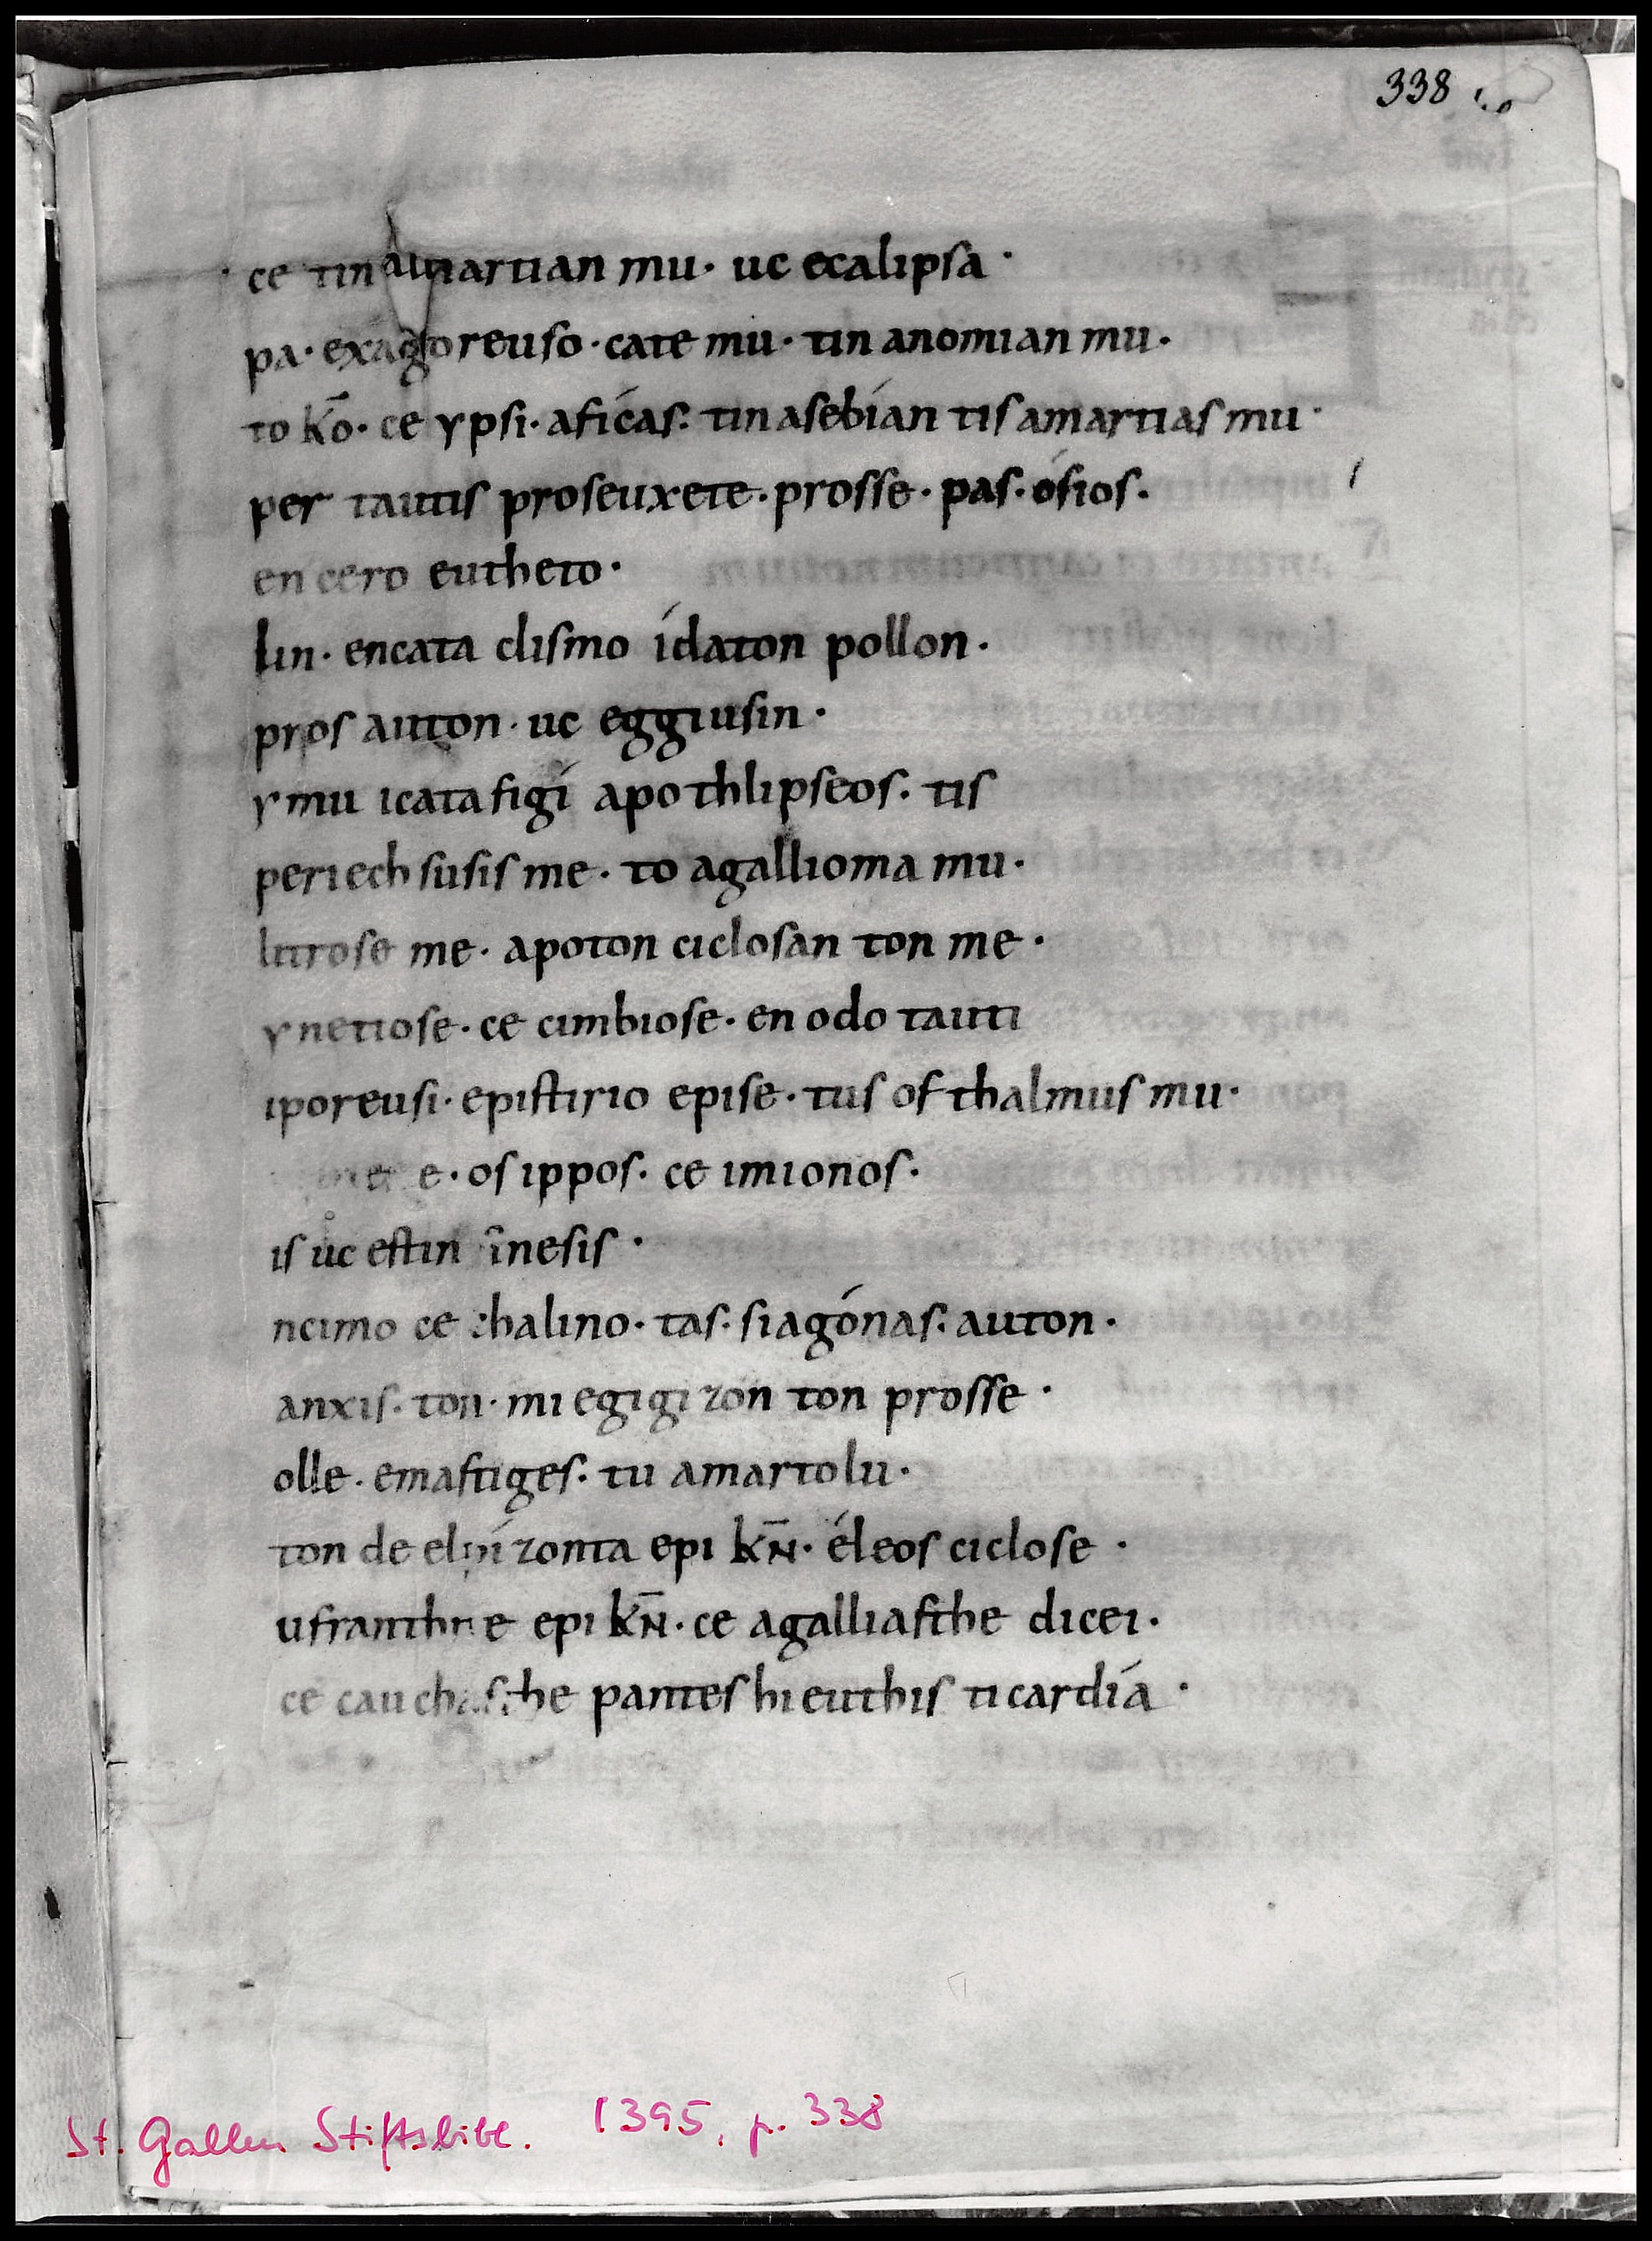 338
ce tin amartian mu· uc ecalipsa·
pa· exagoreuso· cate mu· tin anomian mu·
to k̄o· ce ypsi· afícas· tin asebían tis amartias mu·
per tautis proseuxete· prosse· pas· ósios·
en cero eutheto·
lin· encata clismo ídaton pollon·
pros auton· uc eggiusin·
y mu icata figí apo thlipseos· tis
periech susis me· to agallioma mu·
litrose me· apoton ciclosan ton me·
ynetiose· ce cimbiose· en odo tauti
iporeusi· epistirio epise· tus ofthalmus mu·
e· os ippos· ce imionos·
is uc estin sinesis·
ncimo ce chalino· tas· siagónas· auton·
anxis· ton· mi egigi zon ton prosse·
olle· emastiges· tu amartolu·
ton de elpízonta epi k̄n· éleos ciclose·
ufranthite epi k̄n· ce agalliasthe dicei·
ce cauchasthe pantes hi euthis ti cardía·
St. Gallen Stiftsbibl. 1395, p. 338